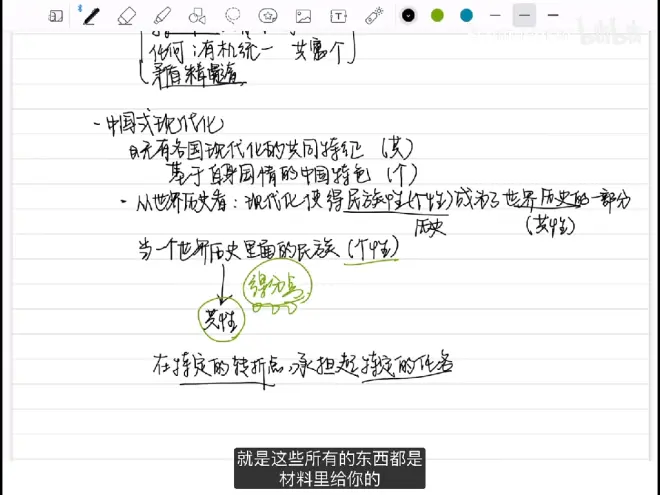 任何：有机统一 共寓个
矛盾精髓
-中国式现代化
既有各国现代化的共同特征（共）
基于自身国情的中国特色（个）
·从世界历史看：现代化使得民族性(个性)成为了世界历史的一部分
历史 （共性）
当一个世界历史里面的民族（个性）
得分点
共性
在特定的转折点，承担起特定的任务
就是这些所有的东西都是
材料里给你的